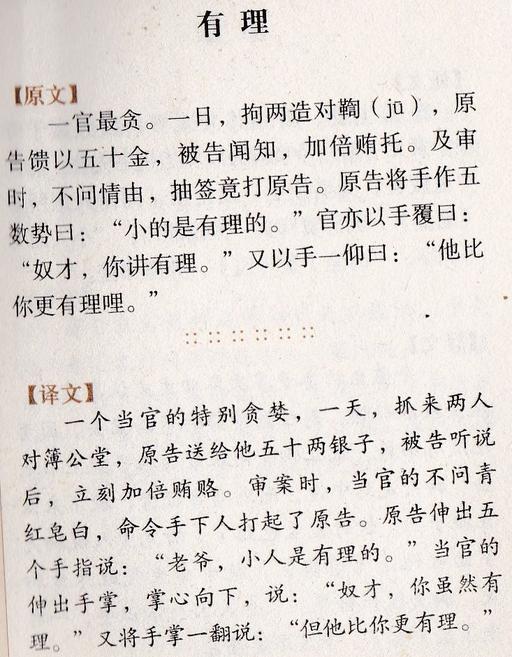 有理
【原文】
一官最贪。一日，拘两造对鞫（jū），原
告馈以五十金，被告闻知，加倍贿托。及审
时，不问情由，抽签竟打原告。原告将手作五
数势曰：“小的是有理的。”官亦以手覆曰：
“奴才，你讲有理。”又以手一仰曰：“他比
你更有理哩。”
【译文】
一个当官的特别贪婪，一天，抓来两人
对薄公堂，原告送给他五十两银子，被告听说
后，立刻加倍贿赂。审案时，当官的不问青
红皂白，命令手下人打起了原告。原告伸出五
个手指说：“老爷，小人是有理的。”当官的
伸出手掌，掌心向下，说：“奴才，你虽然有
理。”又将手掌一翻说：“但他比你更有理。”